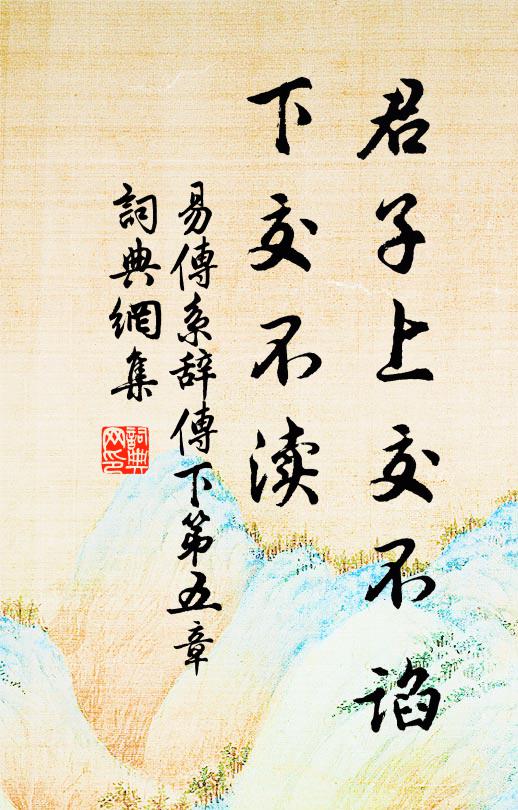 君子上交不谄
下交不渎
易傳系辞傳下第五章
詞典網集
詞典
网印